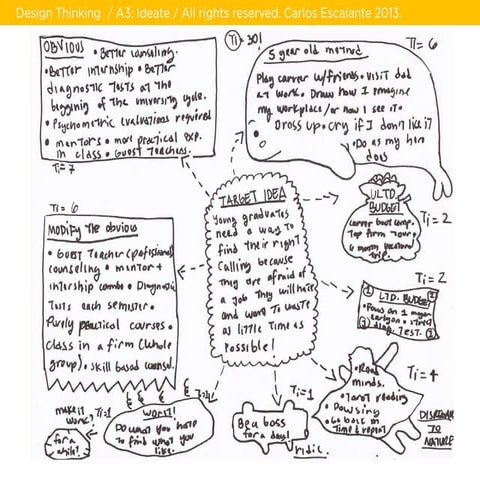 Design Thinking / A3: Ideate / All rights reserved. Carlos Escalante 2013.
OBVIOUS • Better counseling.
• Better internship • Better
diagnostic tests at the
begging of the university cycle.
• Psychometric evaluations required
• mentors • more practical exp.
in class • Guest Teachers.
Ti = 7
Ti = 30!
5 year old method
Ti = 6
Play career w/friends • visit dad
at work. Draw how I imagine
my workplace/or how I see it •
Dress up • cry if I don't like it
• Do as my hero
does
ULTD.
BUDGET
career boot camp.
Top firm tour.
6 month vocational
trip.
Ti = 2
TARGET IDEA
Young graduates
need a way to
find their right
Calling because
They are afraid of
a job They will hate
and want To waste
as little Time as
Possible!
Ti = 6
Modify The obvious
• Guest Teacher (profesional)
counseling • mentor +
Intership combo • Diagnostic
Tests each semester •
Purely practical courses •
class in a firm (whole
group) • skill based counsl.
Ti = 2
LTD. BUDGET
• Focus on 1
TEST.
Ti = 4
• Read
minds.
• Tarot reading
• Dowsing
• Go back in
Time & repeat
DISREGARD
TO
NATURE
Ti = 1
Be a boss
for a day!
ridic.
Worst!
Do what you hate
to find what you
like.
make it
work?
Ti = 1
for a
while!